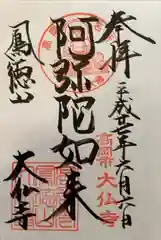 奉拝
平成廿七年六月六日
高岡市 大仏寺
阿弥陀如来
鳳徳山
大仏寺